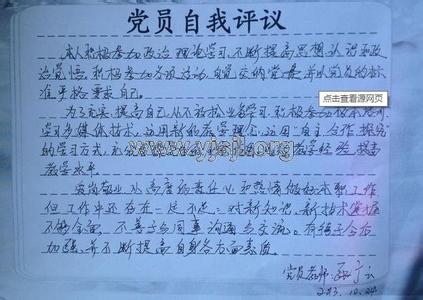 党员自我评议
本人积极参加政治理论学习,不断提高思想认识和政
治觉悟。积极参加各项活动,自觉交纳党费,并以党员的标
准严格要求自己。
点击查看源网页
为了充实、提高自己,从不放松业务学习,积极参加
学习多媒体技术,运用新的教学理念,运用"自主合作探究"
的学习方式,
www.yjsjl.org
教学经验,提高
教学水平。
爱岗敬业,以高度的责任心和热情做好本职工作
但工作中还存在一定不足:对新知识、新技术掌握
不够全面,不善于与同事沟通与交流。有待于今后
加强,并不断提高自身各方面素质。
党员教师:
10.24